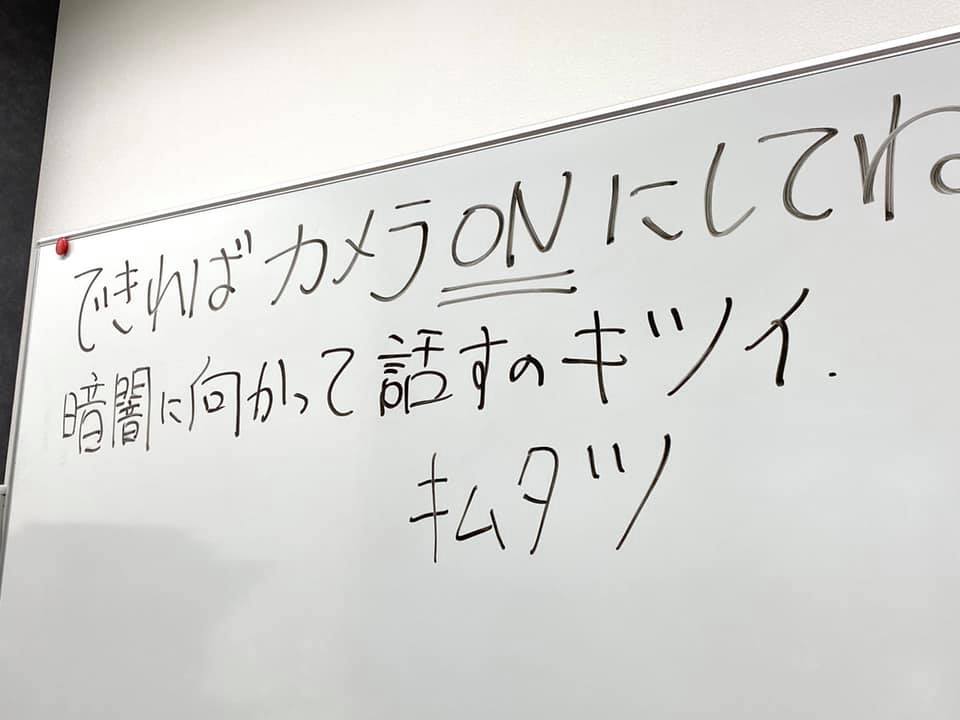 できればカメラONにしてね
暗闇に向かって話すのキツイ.
キムタツ